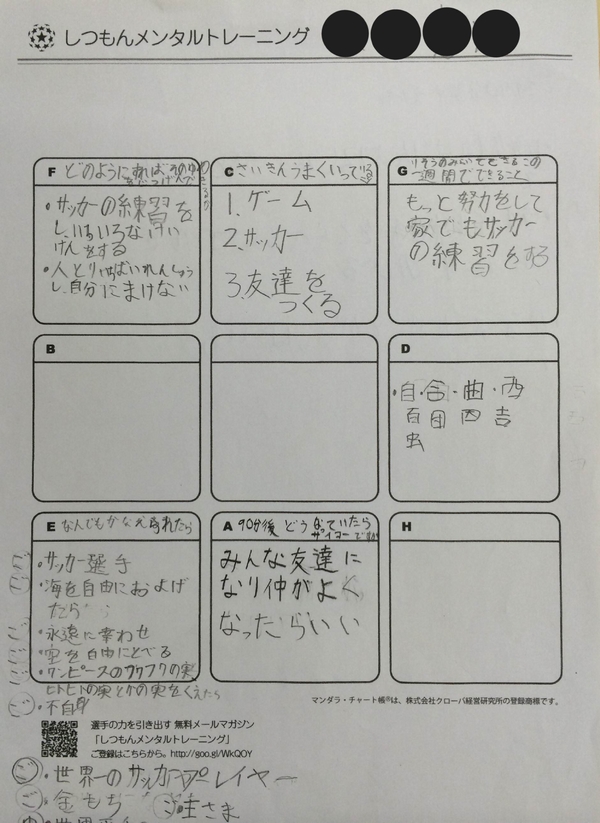 しつもんメンタルトレーニング
F どのようにすれば
・サッカーの練習を
し、いろいろなけい
けんをする
・人とりいちばいれんしゅう
し、自分にまけない
C さいきんうまくいってる
1、ゲーム
2、サッカー
3、友達を
つくる
G りそうのみらいでできるこの
一週間でできること
もっと努力をして
家でもサッカー
の練習をする
B
D
・自・合・曲・西
百 団 四 吉
虫
E なんでもかなえられたら
・サッカー選手
・海を自由におよげ
たら
・永遠に幸わせ
・空を自由にとべる
・ワンピースの
ヒトヒトの実とかの実をくえたら
・不自
A 90分後 どうなっていたら
サイコーですか
みんな友達に
なり仲がよく
なったらいい
H
マンダラ・チャート帳®は、株式会社クローバ経営研究所の登録商標です。
選手の力を引き出す 無料メールマガジン
「しつもんメンタルトレーニング」
ご登録はこちらから。http://goo.gl/WkQOY
ご・世界一のサッカープレイヤー
ご・金もち